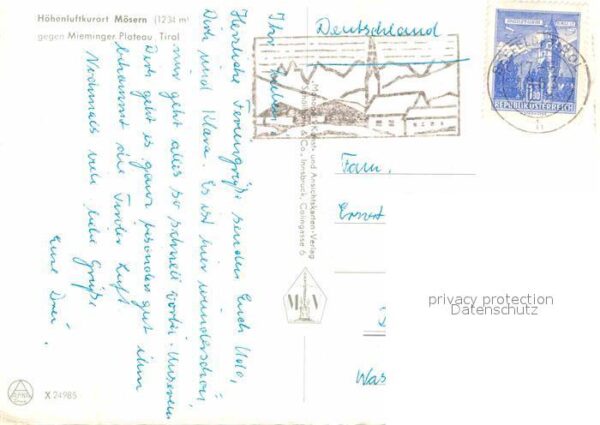 Höhenluftkurort Mösern (1234 m
gegen Mieminger Plateau, Tirol
Ihr Lieben!
Herzliche Feriengrüße senden Euch Udo,
Dirk und Klara. Es ist hier wunderschön,
nur geht alles so schnell vorbei. Unserem
Dirk geht es ganz besonders gut ihm
bekommt die Tiroler Luft
Nochmals viele liebe Grüße
Eure Drei.
Deutschland
REPUBLIK ÖSTERREICH
Kunst- und Ansichtskarten-Verlag
& Co., Innsbruck, Colingasse 6
M V
Fam.
Ernst
Was
X 24985
privacy protection
Datenschutz